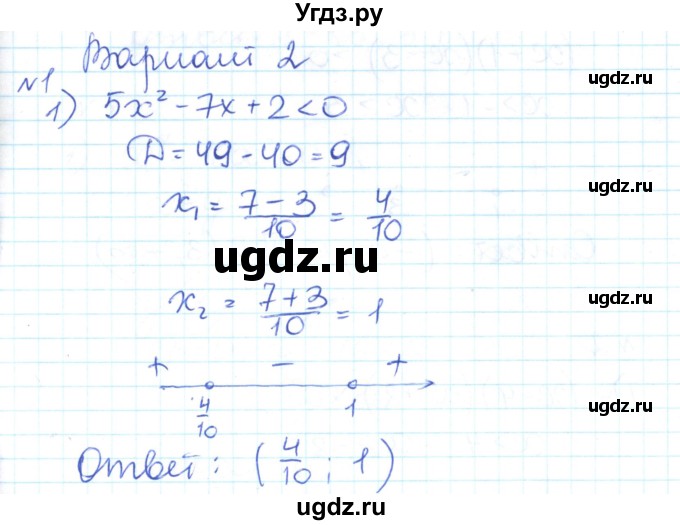 Угдз.ру
Вариант 2
№1
1) 5x² - 7x + 2 < 0
D = 49 - 40 = 9
x₁ = (7 - 3)/10 = 4/10
x₂ = (7 + 3)/10 = 1
+ - +
4/10 1
Ответ: (4/10; 1)
ugdz.ru
ugdz.ru
ugdz.ru
ugdz.ru
ugdz.ru
ugdz.ru
ugdz.ru
ugdz.ru